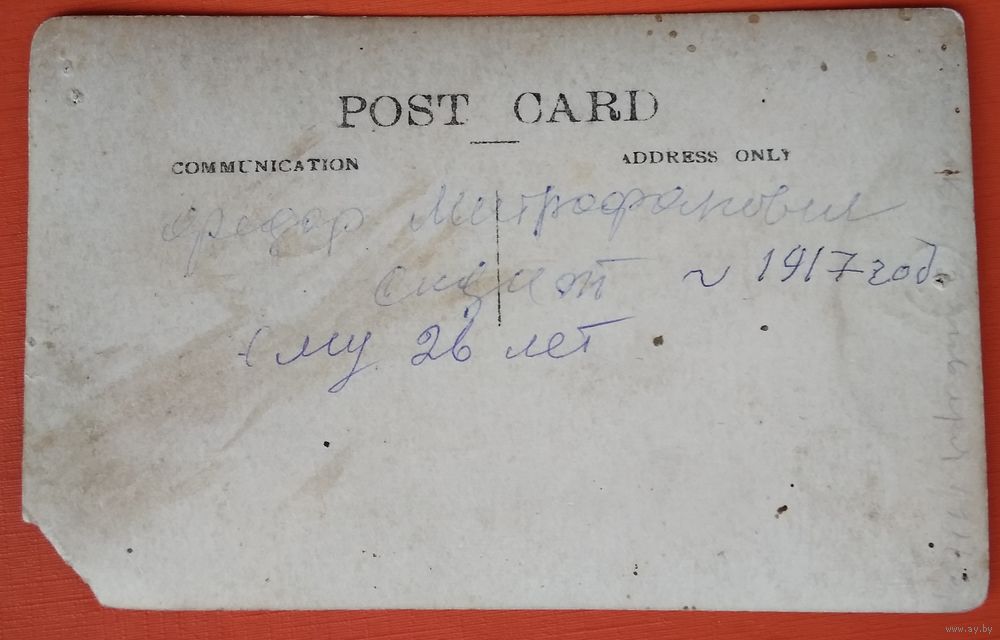 POST CARD
COMMUNICATION
ADDRESS ONLY
Федор Митрофанович
сидит ~ 1917 год.
Ему 26 лет
www.ay.by